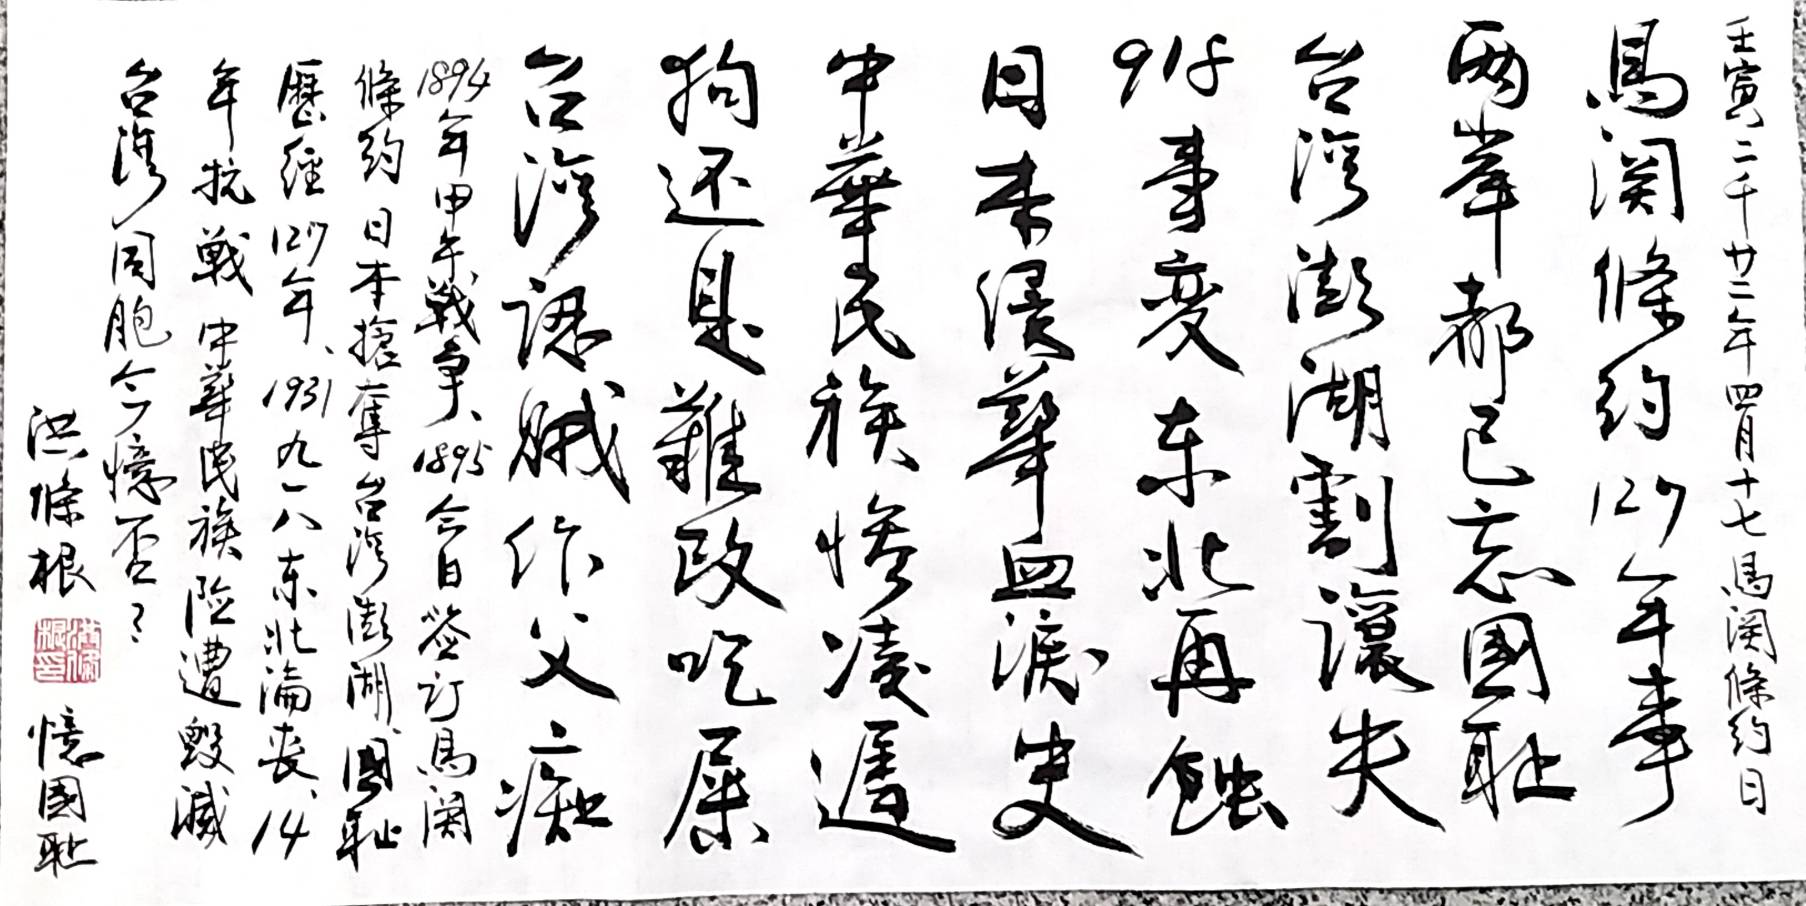 壬寅二千廿二年四月十七馬関條約日
馬関條約127年事
两岸都已忘國耻
台湾澎湖割讓失
918事变东北再蝕
日本侵華血淚史
中華民族惨凌遲
狗还是難改吃屎
台湾認贼作父痴
1894年甲午戰争、1895今日签订馬関
條約日本搶奪台湾澎湖、國耻
歷经127年、1931九一八东北淪丧、14
年抗戰中華民族险遭毀滅
台湾同胞今憶否？
洪條根 憶國耻